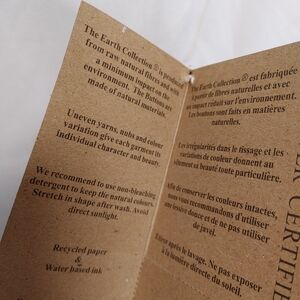 The Earth Collection ® is produced
from raw natural fibres and with
a minimum impact on the
environment. The Buttons are
made of natural materials.
Uneven yarns, nubs and colour
variation give each garment its
individual character and beauty.
We recommend to use non-bleaching
detergent to keep the natural colours.
Stretch in shape after wash. Avoid
direct sunlight.
Recycled paper
&
Water based ink
The Earth Collection ® est fabriquée
à partir de fibres naturelles et avec
un impact réduit sur l'environnement.
Les boutons sont faits en matières
naturelles.
Les irrégularités dans le tissage et les
variations de couleur donnent au
vêtement sa beauté toute particulière.
Afin de conserver les couleurs intactes,
nous vous recommandons d'utiliser
une lessive douce et de ne pas utiliser
de javel.
Etirer après le lavage. Ne pas exposer
à la lumière directe du soleil.
CERTIFIE